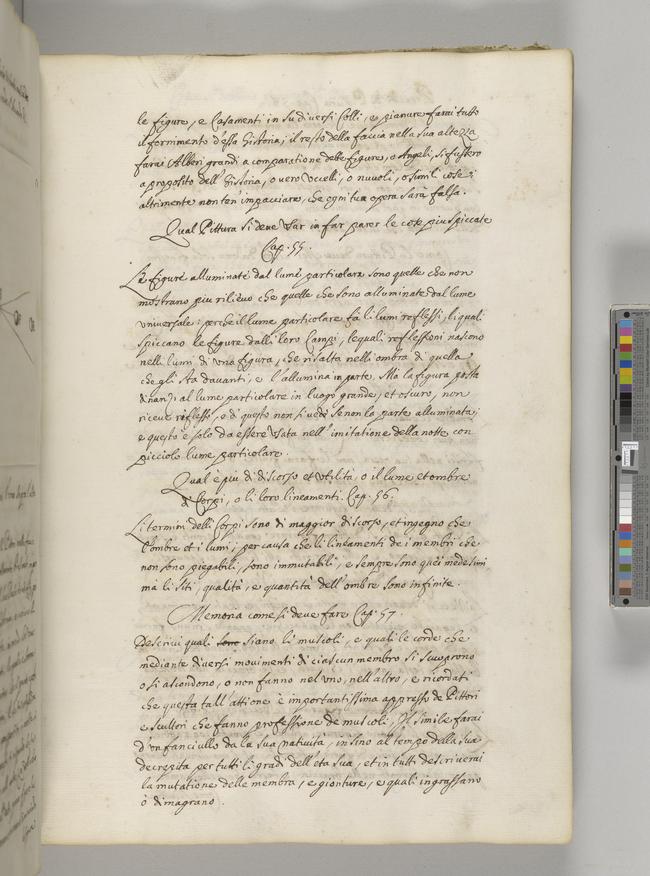 le figure, e Casamenti in su diversi Colli, e pianure farai tutto
il fornimento d'essa historia; il resto della faccia nella sua altezza
farai Alberi grandi a comparatione delle figure, o Angeli, si fussero
a proposito dell'historia, o vero uccelli, o nuvoli, o simili cose;
altrimente non ten' impacciare, che ogni tua opera sarà falsa.
Qual Pittura si deve usar in far parer le cose piu spiccate
Cap. 55.
Le figure alluminate dal lume particolare sono quelle che non
mostrano piu rilievo che quelle che sono alluminate dal lume
universale; perche il lume particolare fà li lumi reflessi, li quali
spiccano le figure dalli loro Campi, lequali reflessioni nascono
nelli lumi di una figura, che risalta nell'ombra di quella
che gli sta davanti, e l'allumina in parte. Ma la figura posta
dinanzi al lume particolare in luogo grande, et oscuro, non
riceve riflesso, e di questo non si vede se non la parte alluminata;
e questo è solo da essere usata nell'imitatione della notte con
picciolo lume particolare.
Qual è piu di discorso et utilità, o il lume et ombre
di Corpi, o li loro lineamenti. Cap. 56.
Li termini delli Corpi sono di maggior discorso, et ingegno che
l'ombre et i lumi; per causa che li lineamenti de i membri che
non sono piegabili, sono immutabili, e sempre sono quei medesimi
ma li siti, qualità, e quantità dell'ombre sono infinite.
Memoria come si deve fare Cap. 57.
Descrivi quali sono siano li muscoli, e quali le corde che
mediante diversi movimenti di ciascun membro si scuoprono
o si ascondono, o non fanno nel uno, nell'altro, e ricordati
che questa tall'attione è importantissima appresso de Pittori
e scultori che fanno professione de muscoli, Il simile farai
d'un fanciullo da la sua natività, insino al tempo della sua
decrepita per tutti li gradi dell'eta sua, et in tutti descriverai
la mutatione delle membra, e gionture, e quali ingrassano
ò dimagrano.